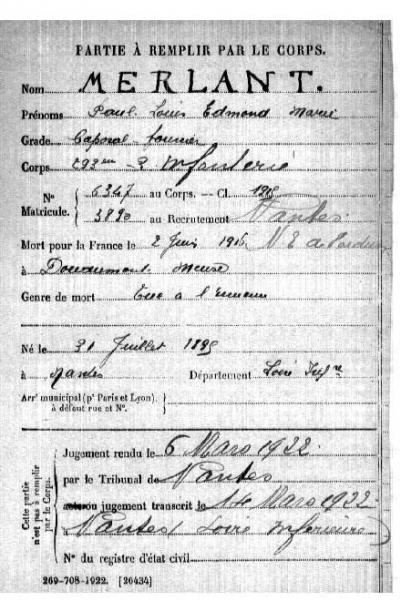 PARTIE À REMPLIR PAR LE CORPS.
Nom MERLANT.
Prénoms Paul Louis Edmond Marie
Grade Caporal-fourrier
Corps 293em R Infanterie
N° Matricule. 6347 au Corps. — Cl. 1915
3890 au Recrutement Nantes
Mort pour la France le 2 Juin 1916 N E de Verdun
à Douaumont Meuse
Genre de mort Tué à l'ennemi
Né le 31 Juillet 1895
à Nantes Département Loire Infre
Arrt municipal (pr Paris et Lyon),
à défaut rue et N°.
Cette partie n'est pas à remplir par le Corps.
Jugement rendu le 6 Mars 1922
par le Tribunal de Nantes
jugement transcrit le 14 Mars 1922
à Nantes Loire Inférieure
N° du registre d'état civil
269-708-1922. [26434]